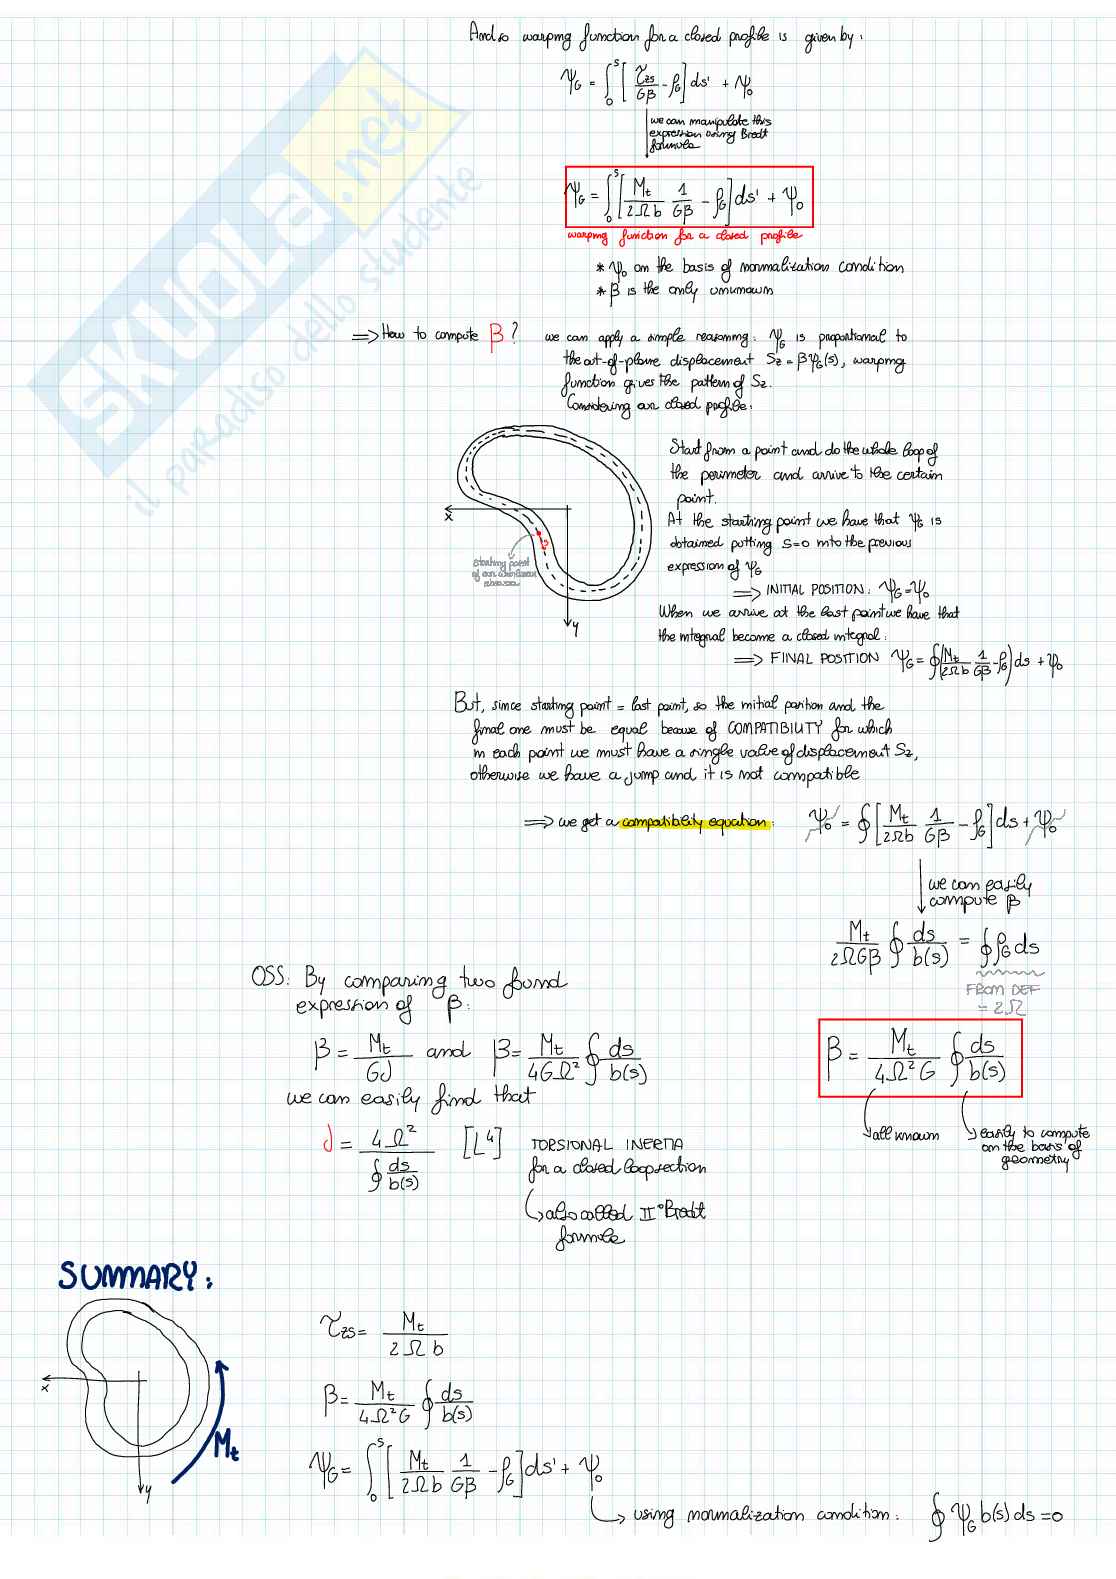 And so warping function for a closed profile is given by:
ψ_G = ∫₀ˢ [ τ_zs / Gβ - ρ_G ] ds' + ψ₀
we can manipulate this
expression using Bredt
formula
ψ_G = ∫₀ˢ [ M_t / 2Ωb 1 / Gβ - ρ_G ] ds' + ψ₀
warping function for a closed profile
* ψ₀ on the basis of normalization condition
* β is the only unknown
⇒ How to compute β? we can apply a simple reasoning: ψ_G is proportional to
the out-of-plane displacement S_z = βψ_G(s), warping
function gives the pattern of S_z.
Considering our closed profile:
Start from a point and do the whole loop of
the perimeter and arrive to the certain
point.
At the starting point we have that ψ_G is
obtained putting s=0 into the previous
expression of ψ_G
x
y
starting point
of our
⇒ INITIAL POSITION: ψ_G = ψ₀
When we arrive at the last point we have that
the integral become a closed integral:
⇒ FINAL POSITION ψ_G = ∮ ( M_t / 2Ωb 1 / Gβ - ρ_G ) ds + ψ₀
But, since starting point = last point, so the initial position and the
final one must be equal because of COMPATIBILITY for which
in each point we must have a single value of displacement S_z,
otherwise we have a jump and it is not compatible
⇒ we get a compatibility equation: ψ₀ = ∮ [ M_t / 2Ωb 1 / Gβ - ρ_G ] ds + ψ₀
we can easily
compute β
M_t / 2ΩGβ ∮ ds / b(s) = ∮ ρ_G ds
FROM DEF
= 2Ω
β = M_t / 4Ω²G ∮ ds / b(s)
all known
easily to compute
on the basis of
geometry
OSS: By comparing two found
expression of β:
β = M_t / GJ and β = M_t / 4GΩ² ∮ ds / b(s)
we can easily find that
J = 4Ω² / ∮ ds / b(s) [L⁴] TORSIONAL INERTIA
for a closed loop section
also called II° Bredt
formula
SUMMARY:
x
y
M_t
τ_zs = M_t / 2Ωb
β = M_t / 4Ω²G ∮ ds / b(s)
ψ_G = ∫₀ˢ [ M_t / 2Ωb 1 / Gβ - ρ_G ] ds' + ψ₀
using normalization condition: ∮ ψ_G b(s) ds = 0
SKUOLA.net
il paradiso dello studente